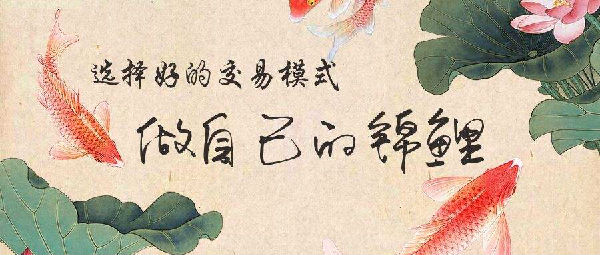 选择好的交易模式
做自己的锦鲤